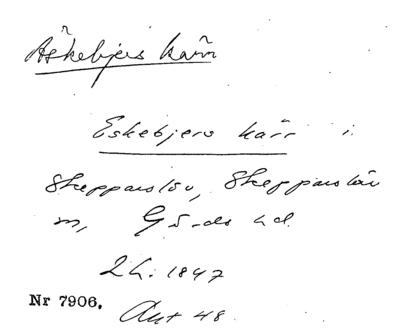 Äskebjers kärr
Eskebjers kärr i
Skepparslöv, Skepparslöv
sn, Gärds hd.
Lh. 1847
Nr 7906. Akt 48.